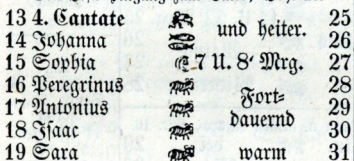 13 4. Cantate und heiter. 25
14 Johanna 26
15 Sophia 7 U. 8' Mrg. 27
16 Peregrinus 28
17 Antonius Fort- 29
18 Isaac dauernd 30
19 Sara warm 31